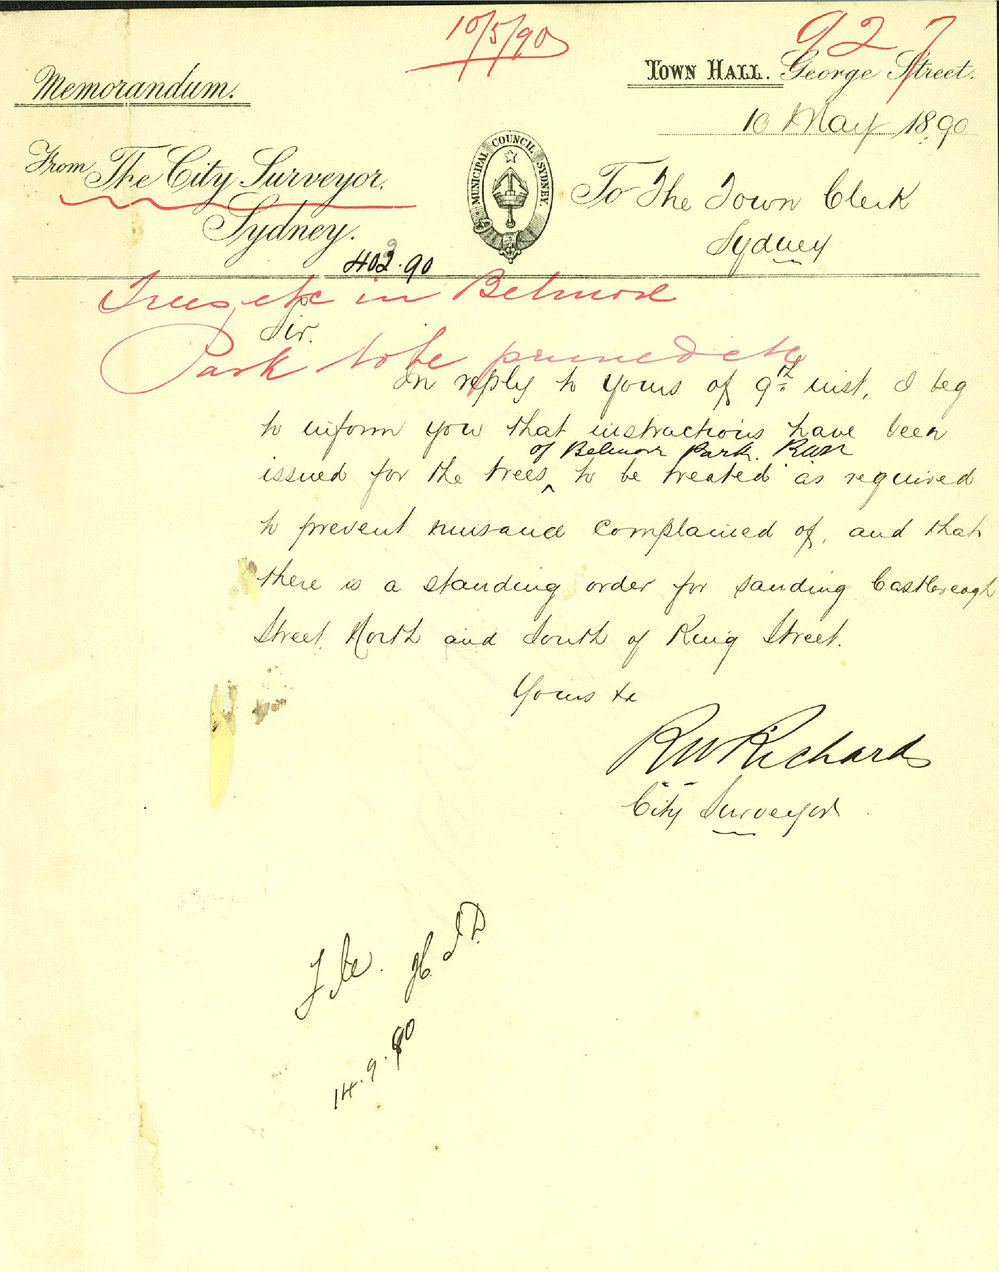 10/5/90
927
Memorandum.
TOWN HALL. George Street.
10 May 1890
From The City Surveyor.
Sydney.
MUNICIPAL COUNCIL SYDNEY.
To The Town Clerk
Sydney
402.90
Trees etc in Belmore
Sir.
Park to be pruned etc
In reply to yours of 9th inst, I beg
to inform you that instructions have been
of Belmore Park. RWR
issued for the trees ^ to be treated as required
to prevent nuisance complained of, and that
there is a standing order for sanding Castlereagh
Street North and South of King Street.
Yours &c
RW Richards
City Surveyor
File. H.
14.9.90